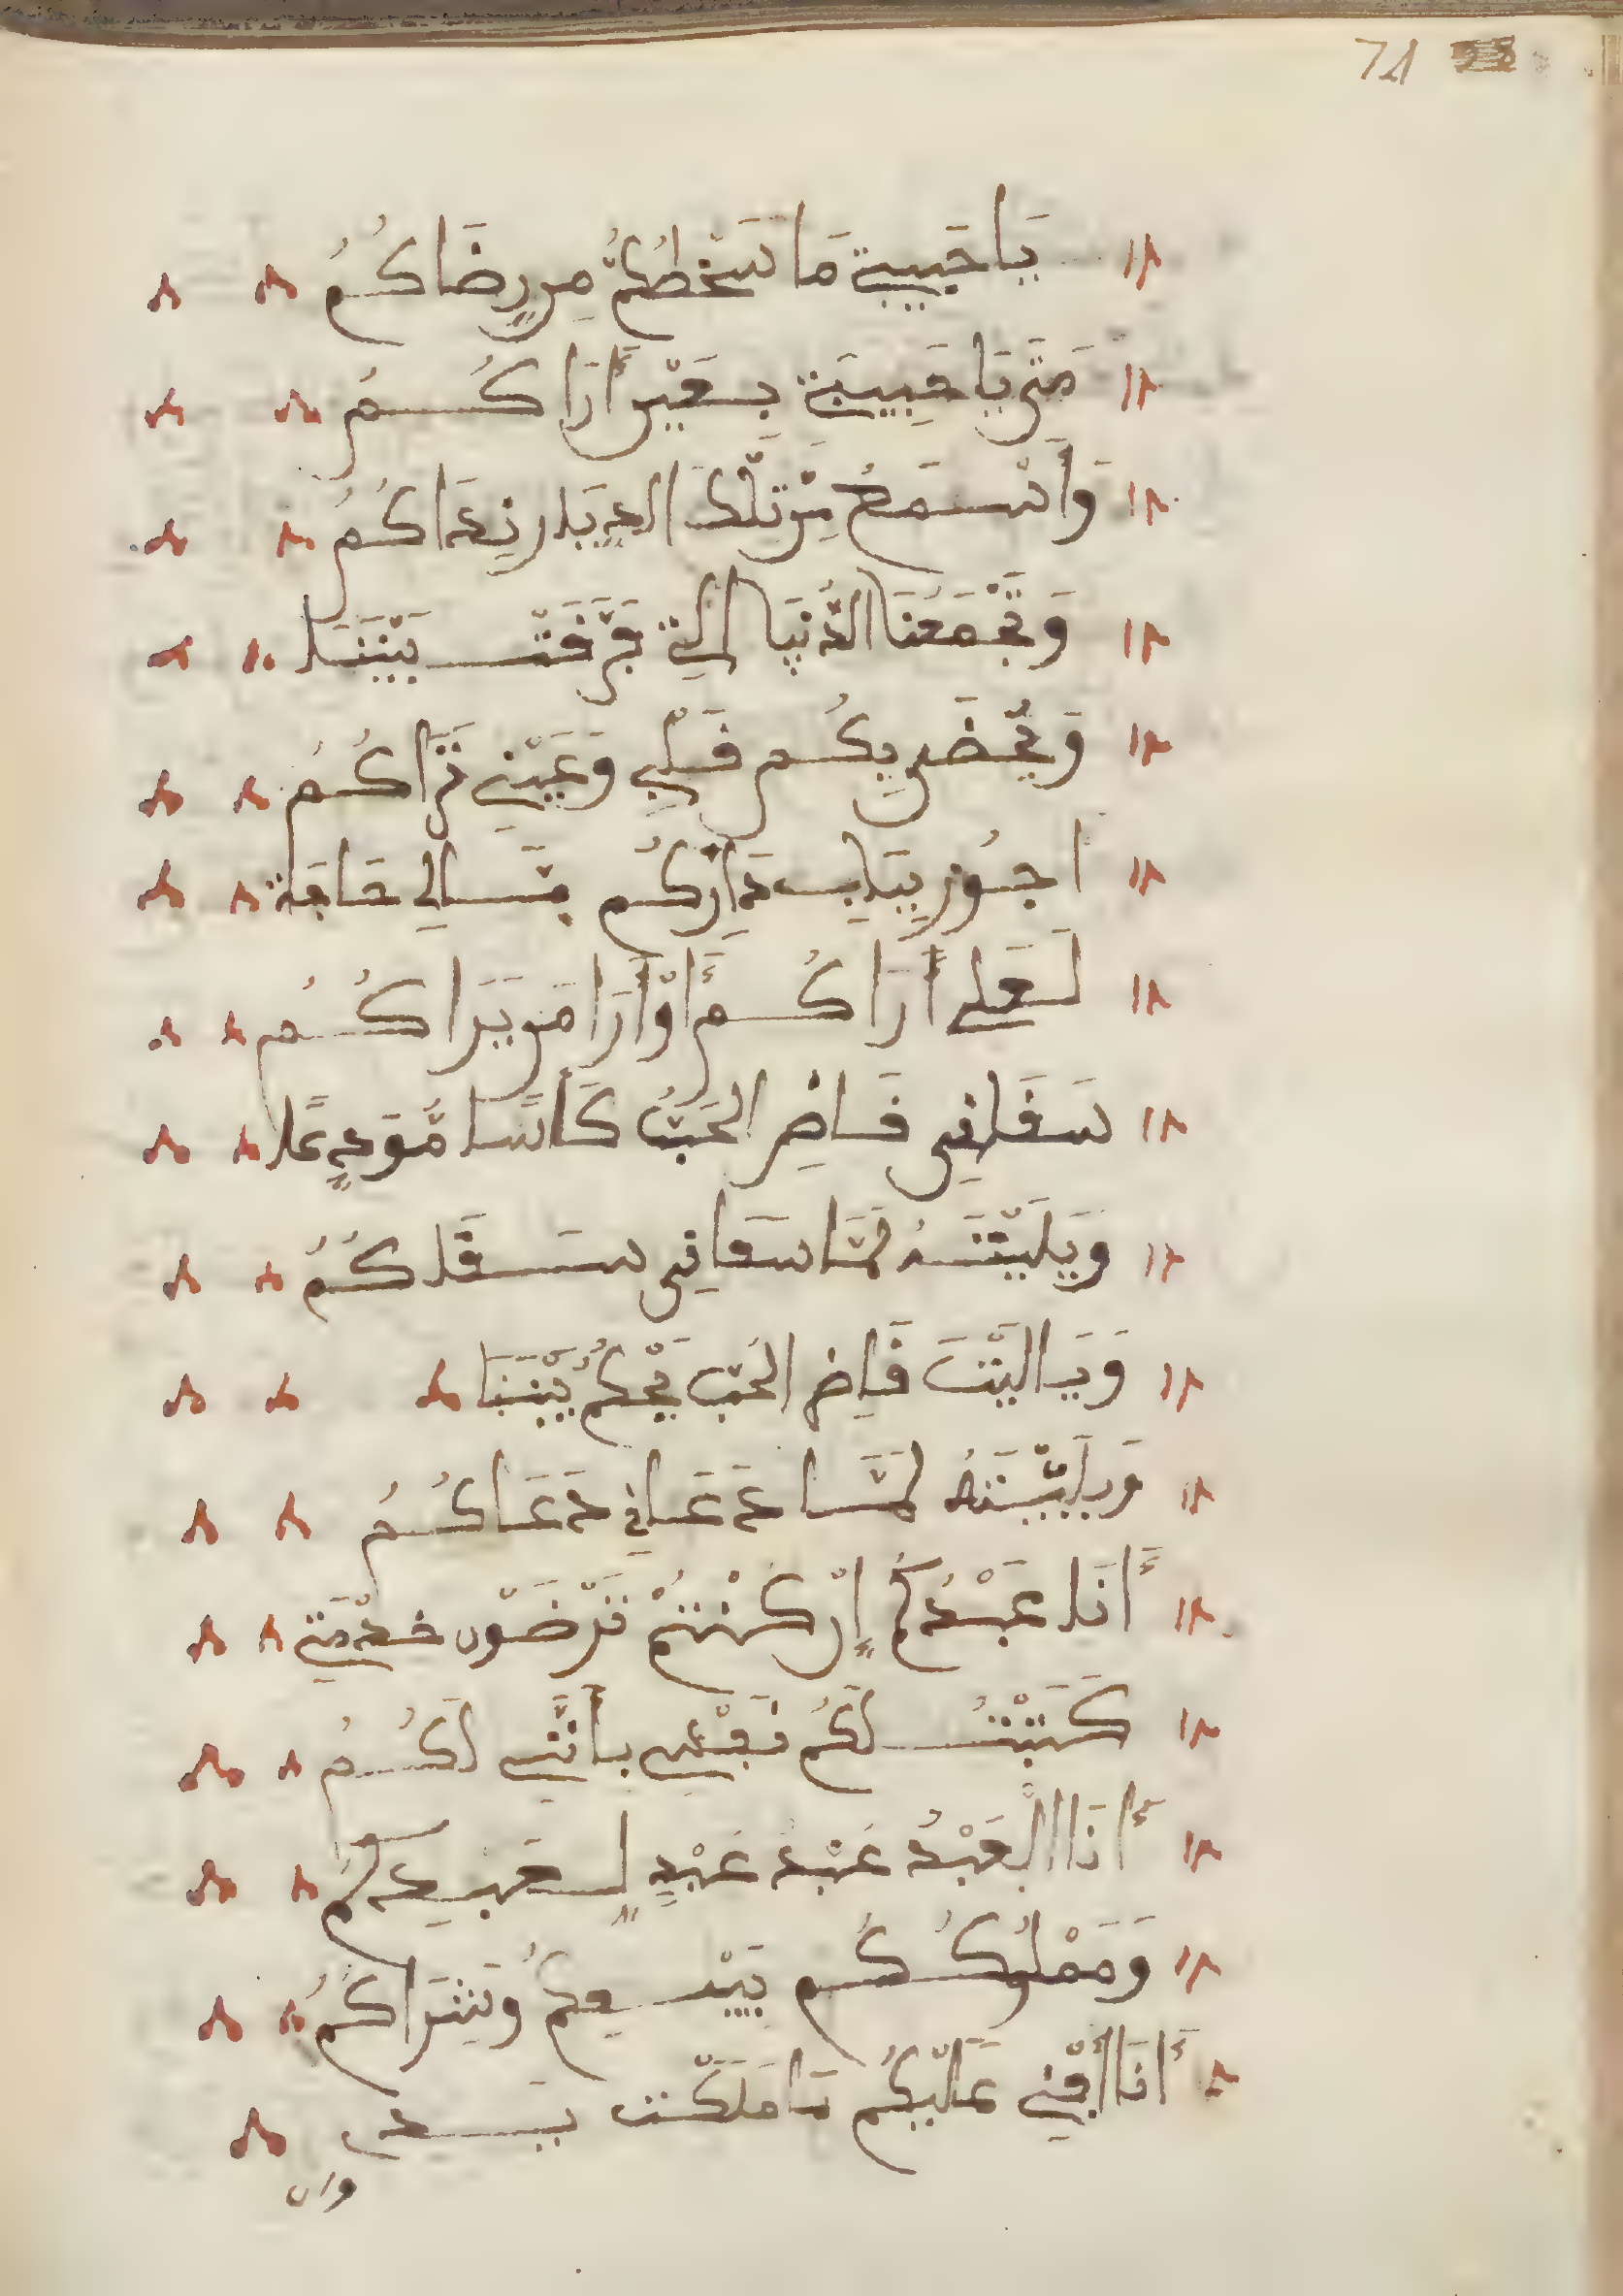 71
يَا حَبِيبِي مَا سَخَطُكُمْ مِن رِضَاكُمُ
مَتَى يَا حَبِيبِي بِعَيْنِ أَرَاكُمُ
وَأَسْمَعُ مِن تِلْكَ الدِّيَارِ نِدَاكُمُ
وَتَجْمَعُنَا الدُّنْيَا الَّتِي فَرَّقَتْ بَيْنَنَا
وَيَحْضَى بِكُم قَلْبِي وَعَيْنِي تَرَاكُمُ
اجُوزُ بِبَابِ دَارِكُم مَّالِي حَاجَة
لَعَلِّي أَرَاكُم أَوْ أَرَا مَن يَرَاكُمُ
سَقَانِي قَاضِ الحُبّ كَأْسًا مُّوَدِعًا
وَيَلَيْتَهُ لَمَّا سَقَانِي سَقَاكُمُ
وَيَا لَيْتَ قَاضِ الحُبّ يَحْكُمُ بَيْنَنَا
وَيَلَيْتَهُ لَمَّا دَعَانِي دَعَاكُمُ
أَنَا عَبْدُكُم إِن كُنْتُمْ تَرْضَوْن خِدْمَتِي
كَتَبْتُ لَكُم نَفْسِي بِأَنَّنِي لَكُمُ
أَنَا الْعَبْدُ عَبْدُ عَبْدٍ لِعَبِيدِكُمُ
وَمَمْلُوكُكُم بَيْنَ بَيْعِكُمُ وَشِرَاكُمُ
أَنَا أَفْنِي عَلَيْكُم مَا مَلَكَتْ يَدِي
وان